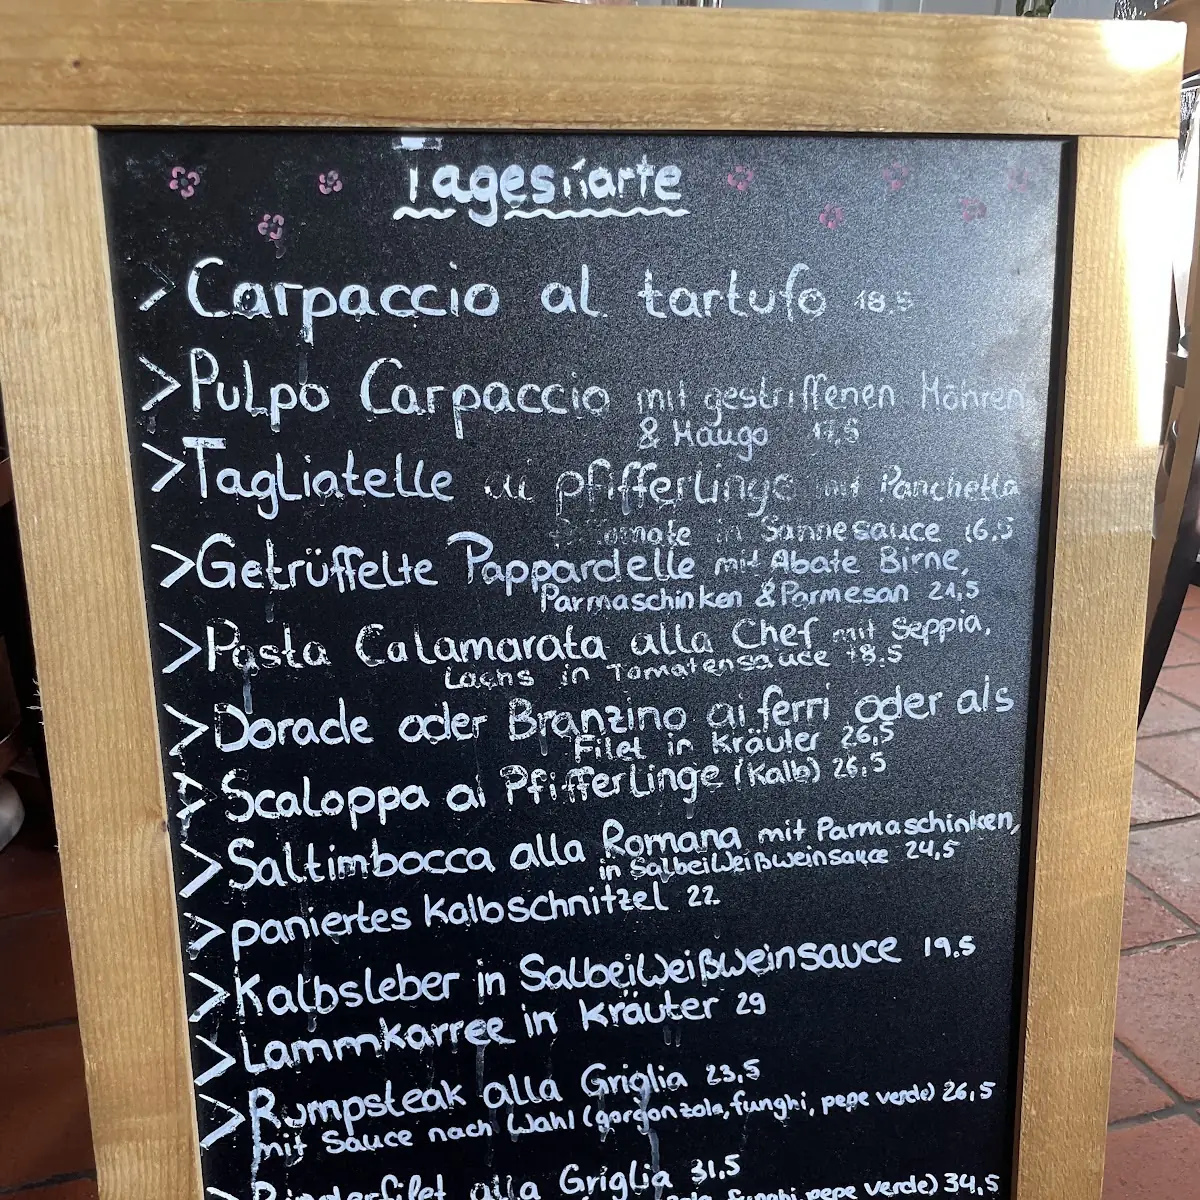 Tageskarte
> Carpaccio al tartufo 18.5
> Pulpo Carpaccio mit gestriffenen Möhren
& Mango 17,5
> Tagliatelle ai pfifferlinge mit Panchetta
in Sannesauce 16.5
> Getrüffelte Pappardelle mit Abate Birne,
Parmaschinken & Parmesan 21,5
> Pasta Calamarata alla Chef mit Seppia,
Lachs in Tomatensauce 18.5
> Dorade oder Branzino ai ferri oder als
Filet in Kräuter 26,5
> Scaloppa ai Pfifferlinge (Kalb) 26,5
> Saltimbocca alla Romana mit Parmaschinken,
in Salbeiweißweinsauce 24,5
> paniertes Kalbschnitzel 22
> Kalbsleber in Salbeiweißweinsauce 19.5
> Lammkarree in Kräuter 29
> Rumpsteak alla Griglia 23,5
mit Sauce nach Wahl (gorgonzola, funghi, pepe verde) 26,5
Rinderfilet alla Griglia 31,5
funghi, pepe verde) 34,5